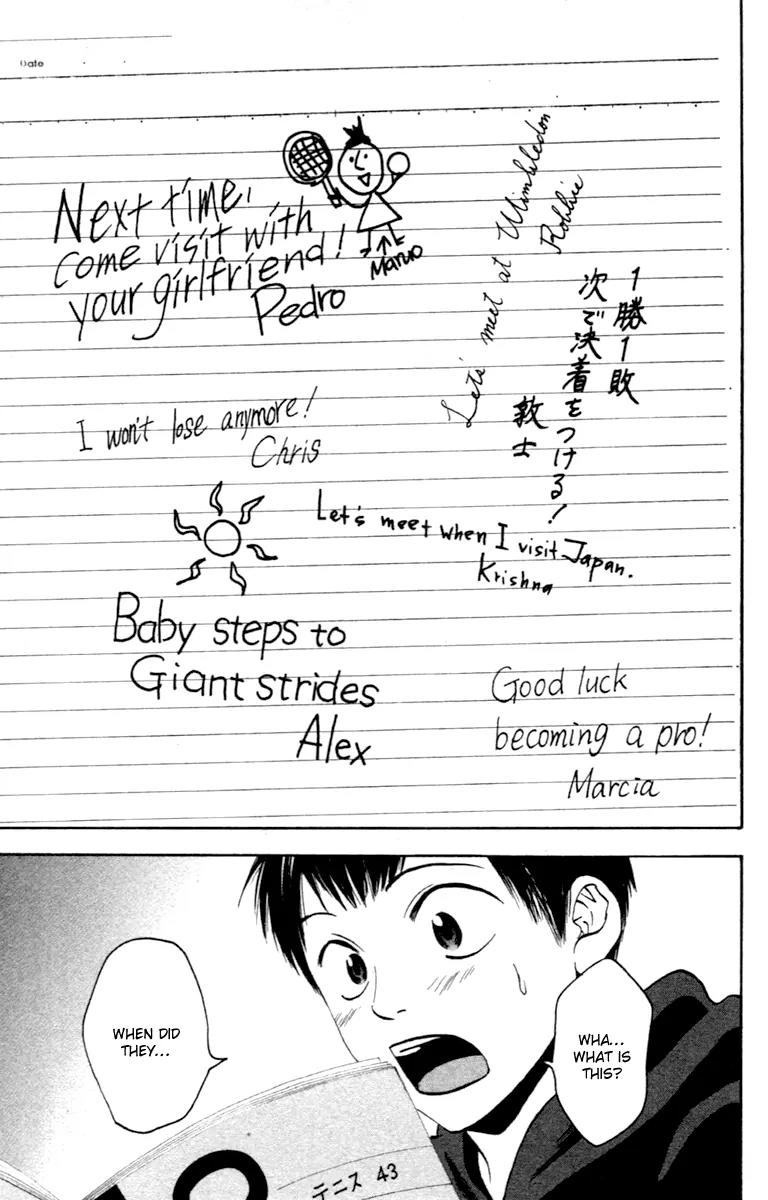 Date
Next time,
come visit with
your girlfriend!
Pedro
Maruo
Let's meet at Wimbledon
Robbie
1勝1敗
次で決着をつける!
敦士
I won't lose anymore!
Chris
Let's meet when I visit Japan.
Krishna
Baby steps to
Giant strides
Alex
Good luck
becoming a pro!
Marcia
WHA...
WHAT IS
THIS?
WHEN DID
THEY...
テニス 43